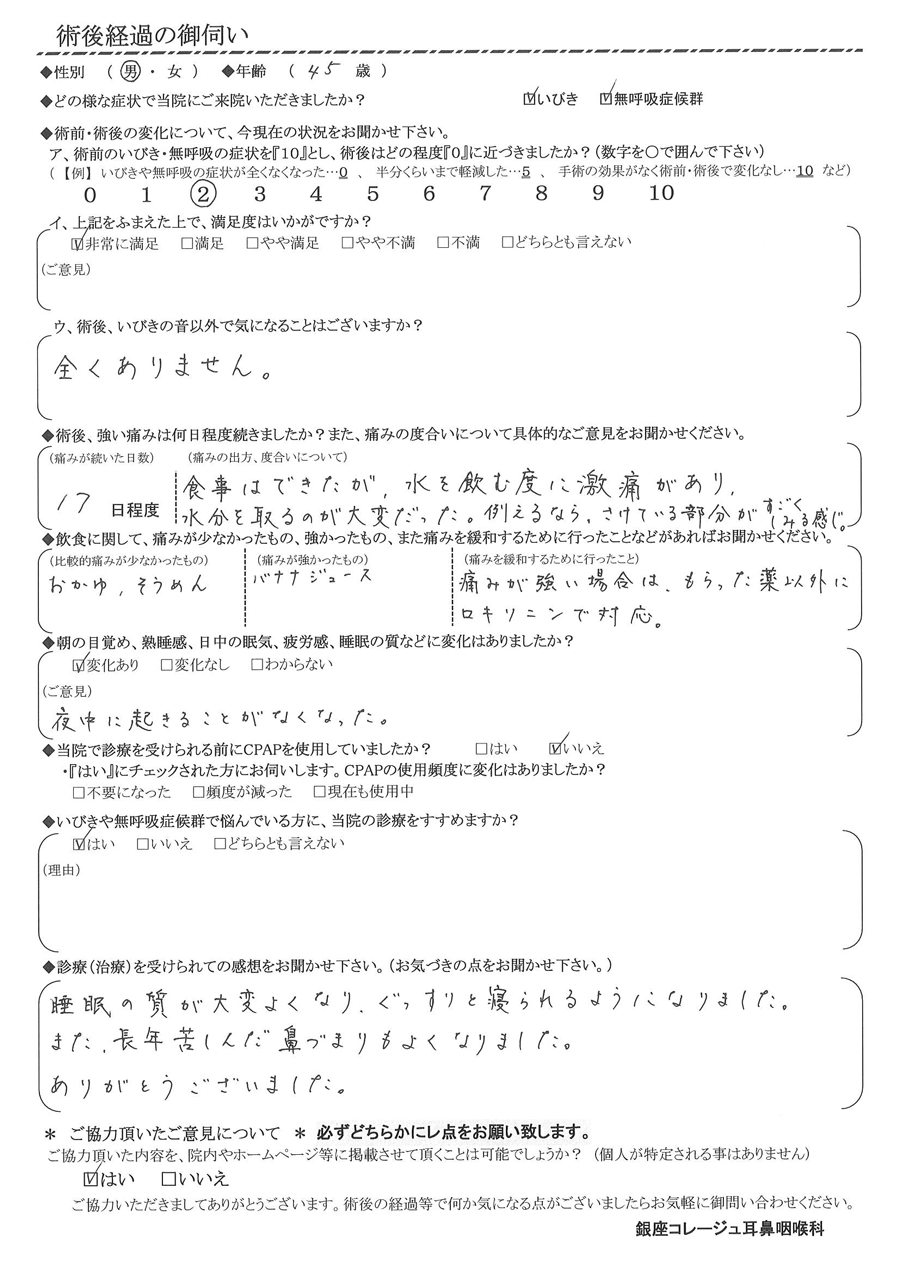 術後経過の御伺い
◆性別 （ 男 ・ 女 ） ◆年齢 （ 45 歳 ）
◆どの様な症状で当院にご来院いただきましたか？ ☑いびき ☑無呼吸症候群
◆術前・術後の変化について、今現在の状況をお聞かせ下さい。
ア、術前のいびき・無呼吸の症状を『10』とし、術後はどの程度『0』に近づきましたか？（数字を〇で囲んで下さい）
（【例】いびきや無呼吸の症状が全くなくなった…0 、 半分くらいまで軽減した…5 、 手術の効果がなく術前・術後で変化なし…10 など）
0 1 2 3 4 5 6 7 8 9 10
イ、上記をふまえた上で、満足度はいかがですか？
☑非常に満足 □満足 □やや満足 □やや不満 □不満 □どちらとも言えない
（ご意見）
ウ、術後、いびきの音以外で気になることはございますか？
全くありません。
◆術後、強い痛みは何日程度続きましたか？また、痛みの度合いについて具体的なご意見をお聞かせください。
（痛みが続いた日数） （痛みの出方、度合いについて）
17 日程度
食事はできたが、水を飲む度に激痛があり、
水分を取るのが大変だった。例えるなら、さけている部分がすごくしみる感じ。
◆飲食に関して、痛みが少なかったもの、強かったもの、また痛みを緩和するために行ったことなどがあればお聞かせください。
（比較的痛みが少なかったもの） （痛みが強かったもの） （痛みを緩和するために行ったこと）
おかゆ、そうめん バナナジュース 痛みが強い場合は、もらった薬以外に
ロキソニンで対応。
◆朝の目覚め、熟睡感、日中の眠気、疲労感、睡眠の質などに変化はありましたか？
☑変化あり □変化なし □わからない
（ご意見）
夜中に起きることがなくなった。
◆当院で診療を受けられる前にCPAPを使用していましたか？ □はい ☑いいえ
・『はい』にチェックされた方にお伺いします。CPAPの使用頻度に変化はありましたか？
□不要になった □頻度が減った □現在も使用中
◆いびきや無呼吸症候群で悩んでいる方に、当院の診療をすすめますか？
☑はい □いいえ □どちらとも言えない
（理由）
◆診療（治療）を受けられての感想をお聞かせ下さい。（お気づきの点をお聞かせ下さい。）
睡眠の質が大変よくなり、ぐっすりと寝られるようになりました。
また、長年苦しんだ鼻づまりもよくなりました。
ありがとうございました。
＊ ご協力頂いたご意見について ＊ 必ずどちらかにレ点をお願い致します。
ご協力頂いた内容を、院内やホームページ等に掲載させて頂くことは可能でしょうか？ （個人が特定される事はありません）
☑はい □いいえ
ご協力いただきましてありがとうございます。術後の経過等で何か気になる点がございましたらお気軽に御問い合わせください。
銀座コレージュ耳鼻咽喉科